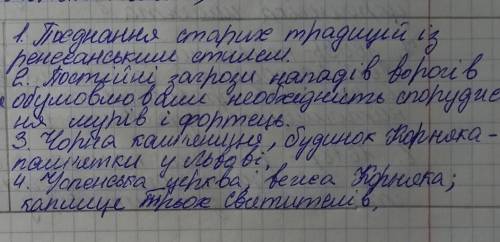 1. Поєднання старих традицій із
ренесанським стилем.
2. Постійні загрози нападів ворогів
обумовлювали необхідність спорудже
ня мурів і фортець.
3. Чорна камʼяниця, будинок Корняка-
памʼятки у Львові.
4. Успенська церква, вежа Корняка;
каплиця трьох святителів,